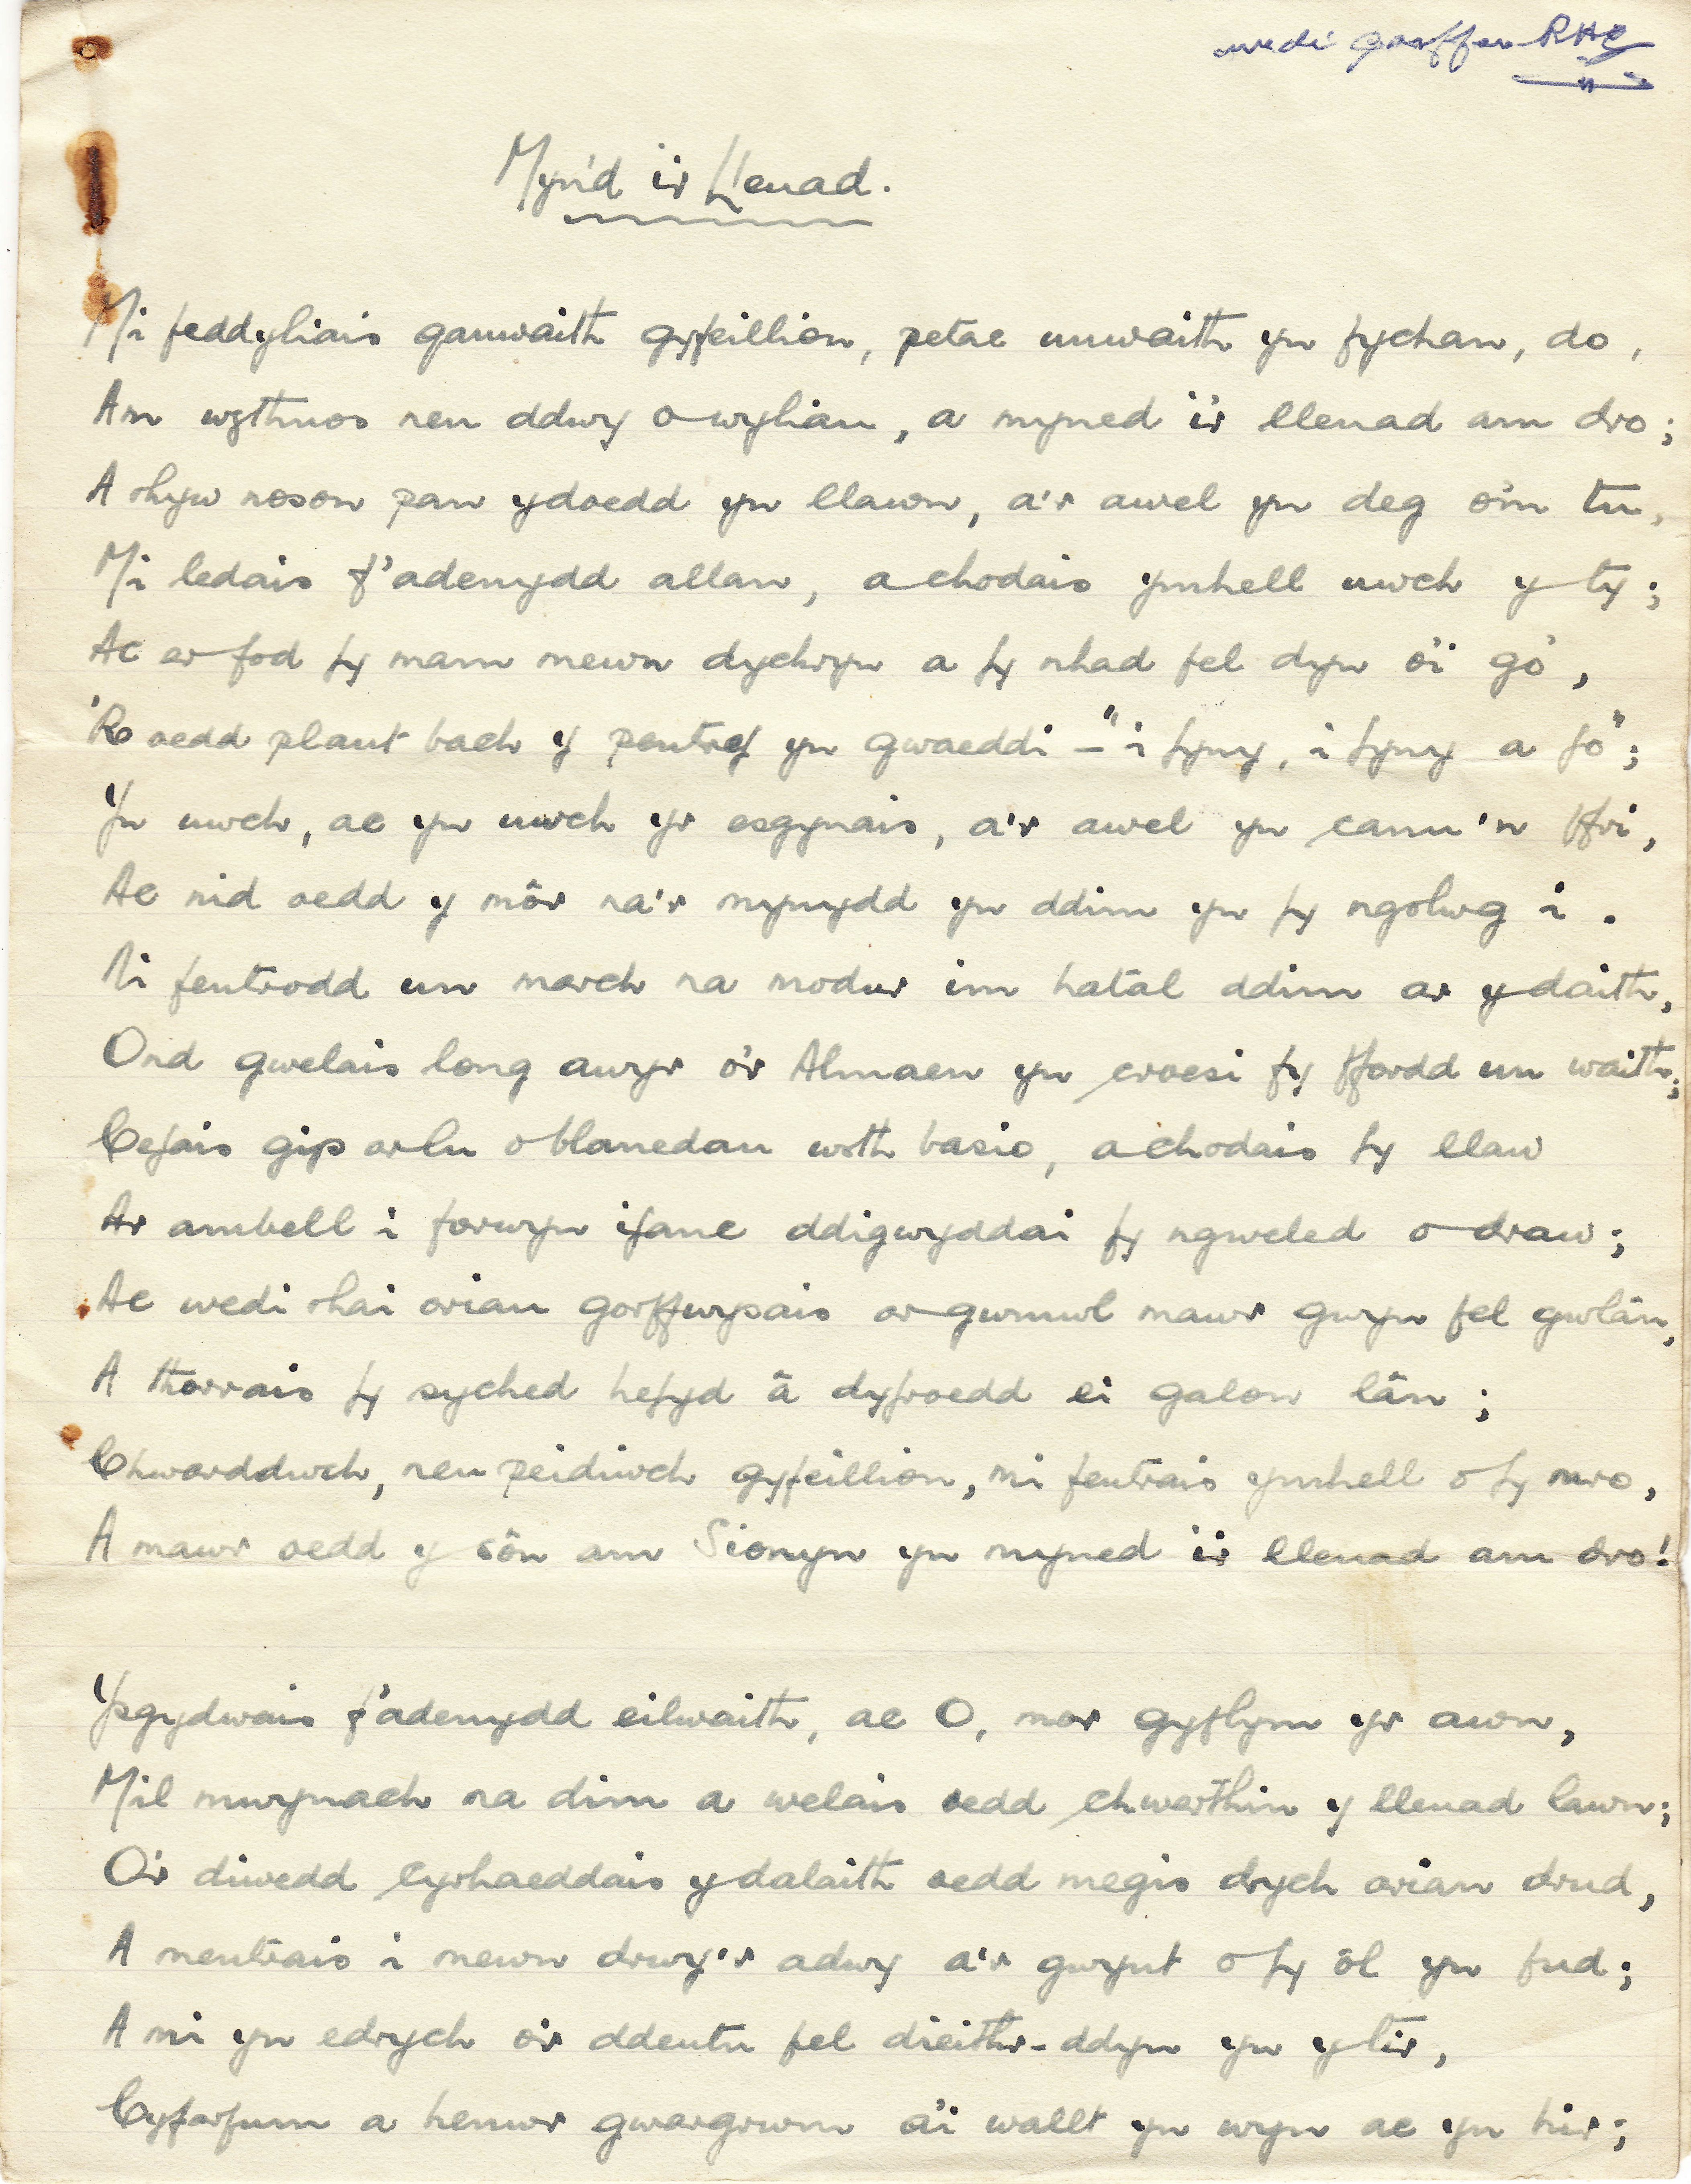 wedi gorffen RHE
Myn'd i'r Lleuad.
Mi feddyliais ganwaith gyfeillion, petae unwaith yn fychan, do,
Am wythnos neu ddwy o wyliau, a myned i'r lleuad am dro;
A rhyw noson pan ydoedd yn llawn, a'r awel yn deg o'm tu,
Mi ledais f'adenydd allan, a chodais ymhell uwch y ty;
Ac er fod fy mam mewn dychryn a fy nhad fel dyn o'i go',
'Roedd plant bach y pentref yn gwaeddi - "i fyny, i fyny a fo";
Yn uwch, ac yn uwch yr esgynais, a'r awel yn canu'n ffri,
Ac nid oedd y môr na'r mynydd yn ddim yn fy ngolwg i.
Ni fentrodd un march na modur im hatal ddim ar y daith,
Ond gwelais long awyr o'r Almaen yn croesi fy ffordd un waith;
Cefais gip ar lu o blanedau wrth basio, a chodais fy llaw
Ar ambell i forwyn ifanc ddigwyddai fy ngweled o draw;
Ac wedi rhai oriau gorffwysais ar gwmwl mawr gwyn fel gwlân,
A thorrais fy syched hefyd â dyfroedd ei galon lân;
Chwarddwch, neu peidiwch gyfeillion, mi fentrais ymhell o fy mro,
A mawr oedd y sôn am Sionyn yn myned i'r lleuad am dro!
Ysgydwais f'adenydd eilwaith, ac O, mor gyflym yr awn,
Mil mwynach na dim a welais oedd chwerthin y lleuad lawn;
O'r diwedd cyrhaeddais y dalaith oedd megis drych arian drud,
A mentrais i mewn drwy'r adwy a'r gwynt o fy ôl yn fud;
A mi yn edrych o'r ddeutu fel dieithr-ddyn yn y tir,
Cyfarfum a henwr gwargrwm a'i wallt yn wyn ac yn hir;